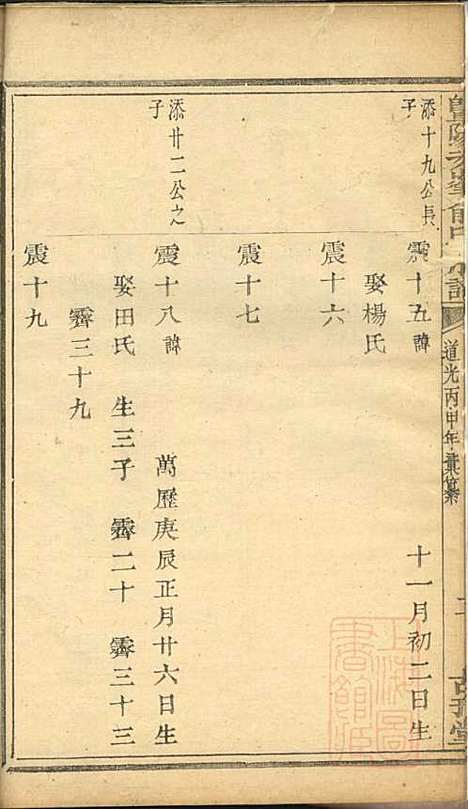 道光丙申年彙纂
添十九公長
子
震十五 諱 十一月初二日生
娶楊氏
震十六
震十七
添廿二公之
子
震十八 諱 萬歷庚辰正月廿六日生
娶田氏 生三子 霽二十 霽三十三
霽三十九
震十九